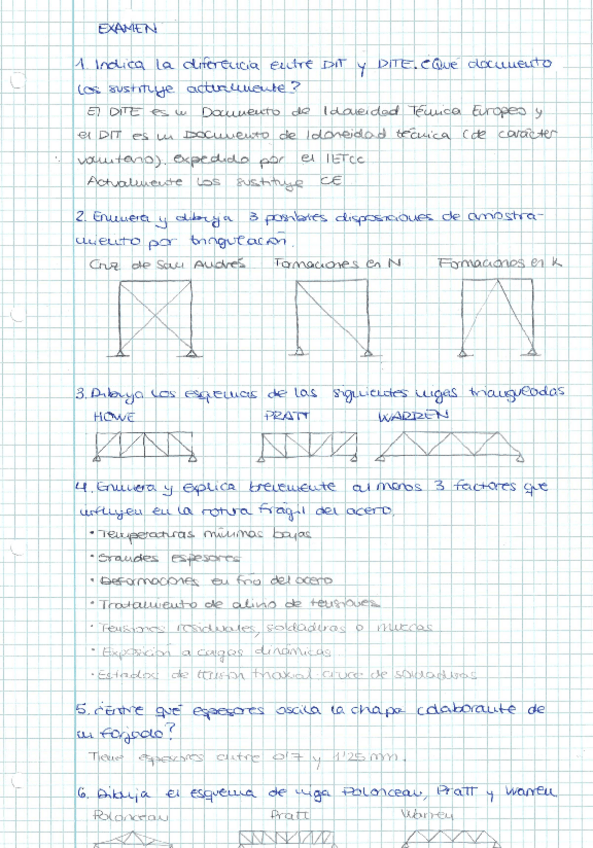 EXAMEN
1. Indica la diferencia entre DIT y DITE. ¿Qué documento
los sustituye actualmente?
El DITE es un Documento de Idoneidad Técnica Europeo y
el DIT es un Documento de Idoneidad técnica (de carácter
voluntario), expedido por el IETCC
Actualmente los sustituye CE
2. Enumera y dibuja 3 posibles disposiciones de arriostra-
miento por triangulación.
Cruz de San Andrés Formaciones en N Formaciones en K
3. Dibuja los esquemas de las siguientes vigas trianguladas
HOWE PRATT WARREN
4. Enumera y explica brevemente al menos 3 factores que
influyen en la rotura frágil del acero.
• Temperaturas mínimas bajas
• Grandes espesores
• Deformaciones en frío del acero
• Tratamiento de alivio de tensiones
• Tensiones residuales, soldaduras o muescas
• Exposición a cargas dinámicas
• Estados de tensión triaxial cruce de soldaduras
5. ¿Entre qué espesores oscila la chapa colaborante de
un forjado?
Tiene espesores entre 0'7 y 1'25 mm.
6. Dibuja el esquema de viga Polonceau, Pratt y Warren
Polonceau Pratt Warren